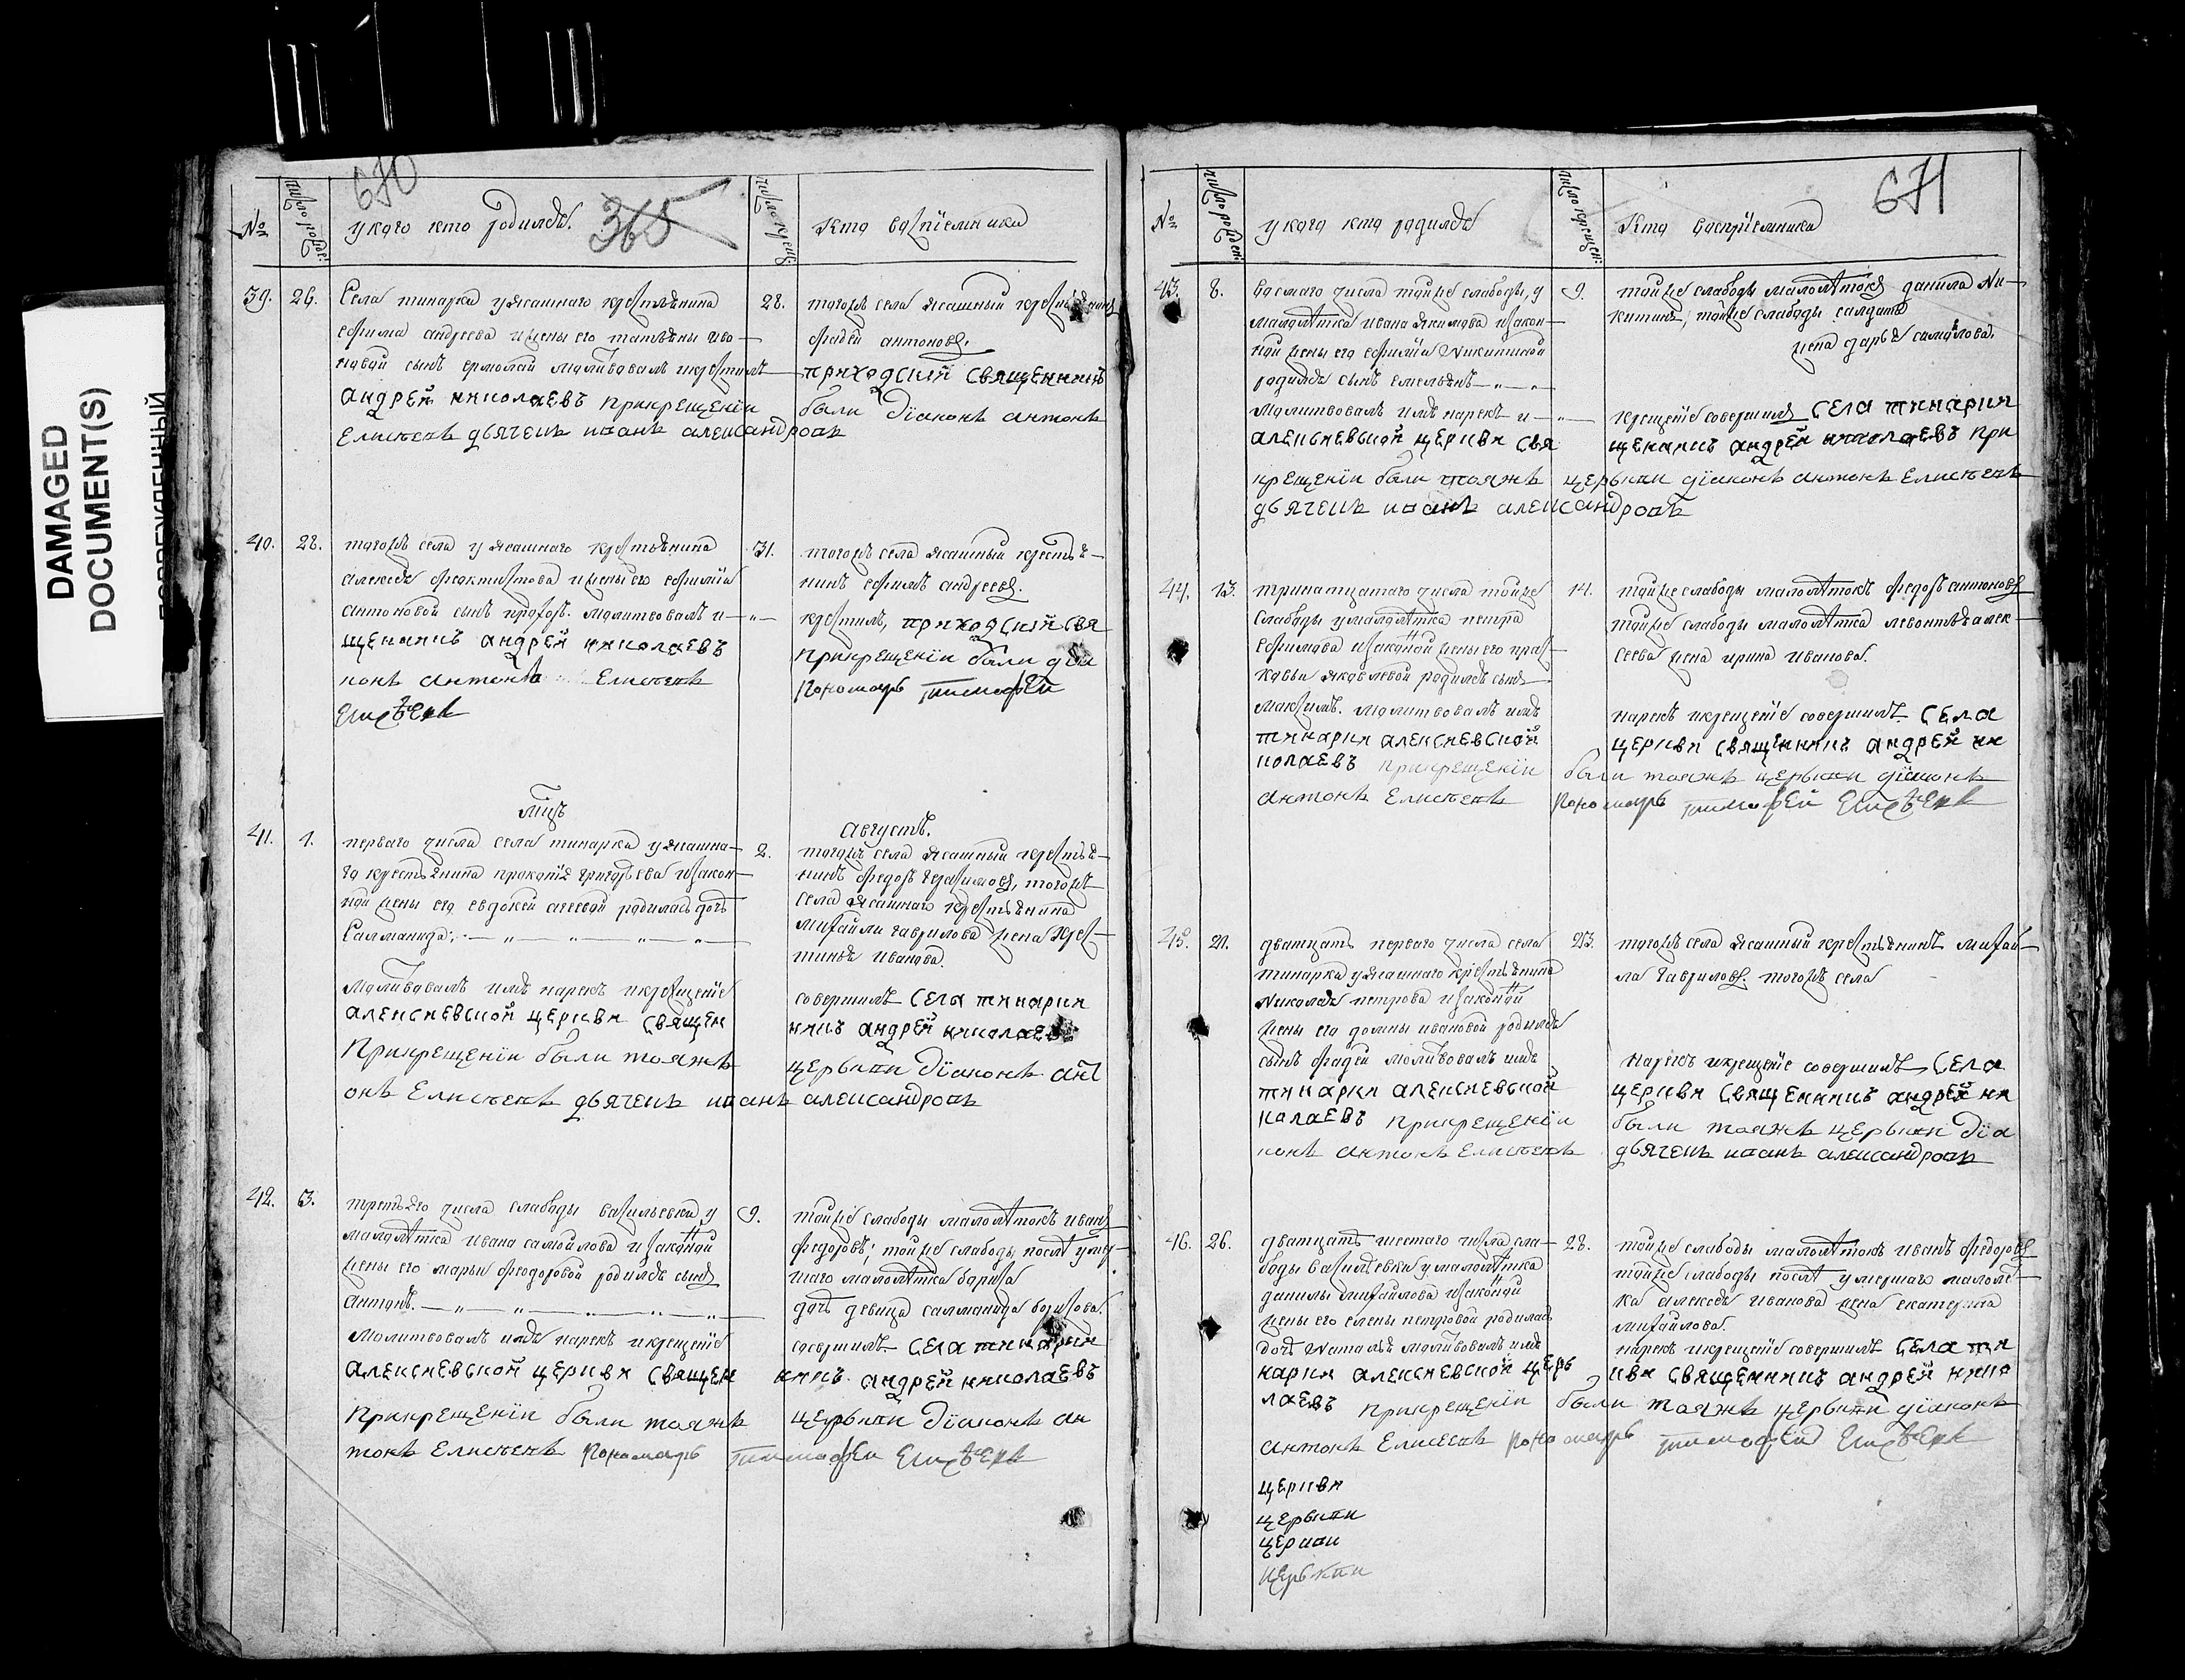 DAMAGED
DOCUMENT(S)
670
365
№
число рожде:
у кого кто родилсѧ.
число крещ:
Кто воспріемники
39.
26.
Села тинарка у ясашнаго крестьянина
ефима андреева и жены его татьяны ива-
новой сынъ ермолай молитвовалъ и крестилъ
АНДРЕЙ НИКОЛАЕВЪ При крещеніи
Елисеевъ дьячекъ иванъ александровъ
28.
тогожъ села ясашный крестьянинъ
фадей антоновъ.
ПРИХОДСКІЙ СВЯЩЕННИКЪ
были діаконъ антонъ
40.
28.
тогожъ села у ясашнаго крестьянина
алексея феоктистова и жены его ефиміи
антоновой сынъ прохоръ. молитвовалъ и
ЩЕННИКЪ АНДРЕЙ НИКОЛАЕВЪ
конъ антонъ Елисеевъ
31.
тогожъ села ясашный крестья-
нинъ ефимъ андреевъ.
крестилъ, ПРИХОДСКІЙ СВЯ
При крещеніи были діа
Пономарь тимофей
мцъ
августъ.
41.
1.
перваго числа села тинарка у ясашна-
го крестьянина прокопія григорьева и закон-
ной жены его евдокеи агеевой родилась дочь
Салманида
молитвовалъ имѧ нарекъ и крещеніе
АЛЕКСИЕВСКОЙ ЦЕРКВИ СВЯЩЕН
При крещеніи были тояжъ
онъ Елисеевъ дьячекъ иванъ александровъ
2.
тогожъ села ясашный крестья-
нинъ федоръ герасимовъ, тогожъ
села ясашнаго крестьянина
михайли гаврилова жена крес-
тинья иванова.
совершилъ СЕЛА ТИНАРКИ
НИКЪ АНДРЕЙ НИКОЛАЕВЪ
церькви діаконъ ант
42.
3.
третьяго числа слабоды васильевки у
малолѣтка ивана самойлова и законной
жены его марьи феодоровой родилсѧ сынъ
антонъ.
молитвовалъ имѧ нарекъ и крещеніе
АЛЕКСИЕВСКОЙ ЦЕРКВИ СВЯЩЕН
При крещеніи были тояжъ
тонъ Елисеевъ Пономарь тимофей
9.
тойже слабоды малолѣтокъ иванъ
федоровъ; тойже слабоды послѣ умер-
шаго малолѣтка бориса
дочь девица салманида борисова.
совершилъ СЕЛА ТИНАРКИ
НИКЪ АНДРЕЙ НИКОЛАЕВЪ
церькви діаконъ ан
671
№
число рожден:
у кого кто родилсѧ
число крещен:
Кто воспріемники
43.
8.
восмаго числа тойже слабоды, у
малолѣтка ивана якимова и закон-
ной жены его ефиміи никитиной
родилсѧ сынъ емельянъ
молитвовалъ имѧ нарекъ и
АЛЕКСИЕВСКОЙ ЦЕРКВИ СВЯ
крещеніи были тояжъ церькви діаконъ антонъ Елисеевъ
дьячекъ иванъ александровъ
9.
тойже слабоды малолѣтокъ данила ни-
китинъ, тойже слабоды салдата
жена дарья самойлова.
крещеніе совершилъ СЕЛА ТИНАРКИ
ЩЕННИКЪ АНДРЕЙ НИКОЛАЕВЪ ПРИ
44.
13.
тринатцатаго числа тойже
слабоды у малолѣтка петра
ефимова и законной жены его прас-
ковьи яковлевой родилсѧ сынъ
максимъ. молитвовалъ имѧ
ТИНАРКИ АЛЕКСИЕВСКОЙ
КОЛАЕВЪ При крещеніи были тояжъ церькви діаконъ
антонъ Елисеевъ Пономарь тимофей
14.
тойже слабоды малолѣтокъ федоръ антоновъ
тойже слабоды малолѣтка левонтья алек-
сеева жена ирина иванова.
нарекъ и крещеніе совершилъ СЕЛА
ЦЕРКВИ СВЯЩЕННИКЪ АНДРЕЙ НИ
45.
21.
дватцать перваго числа села
тинарка у ясашнаго крестьянина
николая петрова и законной
жены его домны ивановой родилсѧ
сынъ фадей молитвовалъ имѧ
ТИНАРКИ АЛЕКСИЕВСКОЙ
КОЛАЕВЪ При крещеніи
конъ антонъ Елисеевъ
23.
тогожъ села ясашный крестьянинъ михай-
ла гавриловъ. тогожъ села
нарекъ и крещеніе совершилъ СЕЛА
ЦЕРКВИ СВЯЩЕННИКЪ АНДРЕЙ НИ
были тояжъ церькви діа
дьячекъ иванъ александровъ
46.
26.
дватцать шестаго числа сла-
боды васильевки у малолѣтка
данилы михайлова и законной
жены его елены петровой родилась
дочь наталья молитвовалъ имѧ
НАРКИ АЛЕКСИЕВСКОЙ ЦЕРЬ
ЛАЕВЪ При крещеніи были тояжъ церькви діаконъ
антонъ Елисеевъ Пономарь тимофей
28.
тойже слабоды малолѣтокъ иванъ федоровъ
тойже слабоды послѣ умершаго малолѣ-
ка алексея иванова жена екатерина
михайлова.
нарекъ и крещеніе совершилъ СЕЛА ТИ
КВИ СВЯЩЕННИКЪ АНДРЕЙ НИКО
церкви
церькви
церкви
церькви